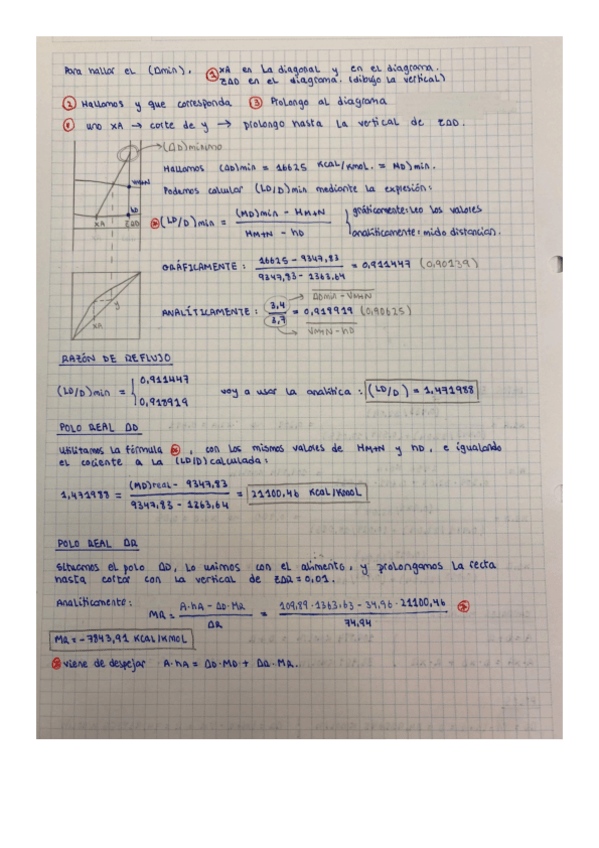 Para hallar el (Δmin). ① XA en la diagonal y en el diagrama.
ZΔD en el diagrama. (dibujo la vertical)
② Hallamos y que corresponda ③ Prolongo al diagrama
① uno XA → corte de y → prolongo hasta la vertical de ZΔD.
→(ΔD)mínimo
Hallamos (ΔD)min = 16625 KCAL/KMOL. = MD)min.
HM+N
Podemos calcular (LD/D)min mediante la expresión:
hD
XA ZΔD
⊛ (LD/D)min = (MD)min - HM+N / HM+N - hD
gráficamente: Leo los valores
analíticamente: mido distancias.
GRÁFICAMENTE: 16625 - 9347,83 / 9347,83 - 1363,64 = 0,911447 (0,90139)
y
XA
ANALÍTICAMENTE: 3,4 / 3,7 = 0,919919 (0,90625)
ΔDmin - VM+N
VM+N - hD
RAZÓN DE REFLUJO
(LD/D)min = { 0,911447
0,918919
voy a usar la analítica: (LD/D) = 1,471988
POLO REAL ΔD
Utilizamos la fórmula ⊛, con los mismos valores de HM+N y hD, e igualando
el cociente a la (LD/D) calculada:
1,471988 = (MD)real - 9347,83 / 9347,83 - 1363,64 = 21100,46 KCAL/KMOL
POLO REAL ΔR
Situamos el polo ΔD, lo unimos con el alimento, y prolongamos la recta
hasta cortar con la vertical de ZΔR = 0,01.
Analíticamente:
MR = A·hA - ΔD·MR / ΔR = 109,89·1363,63 - 34,96·21100,46 / 74,94 ⊛
MR = -7843,91 KCAL/KMOL
⊛ viene de despejar A·hA = ΔD·MD + ΔR·MR.